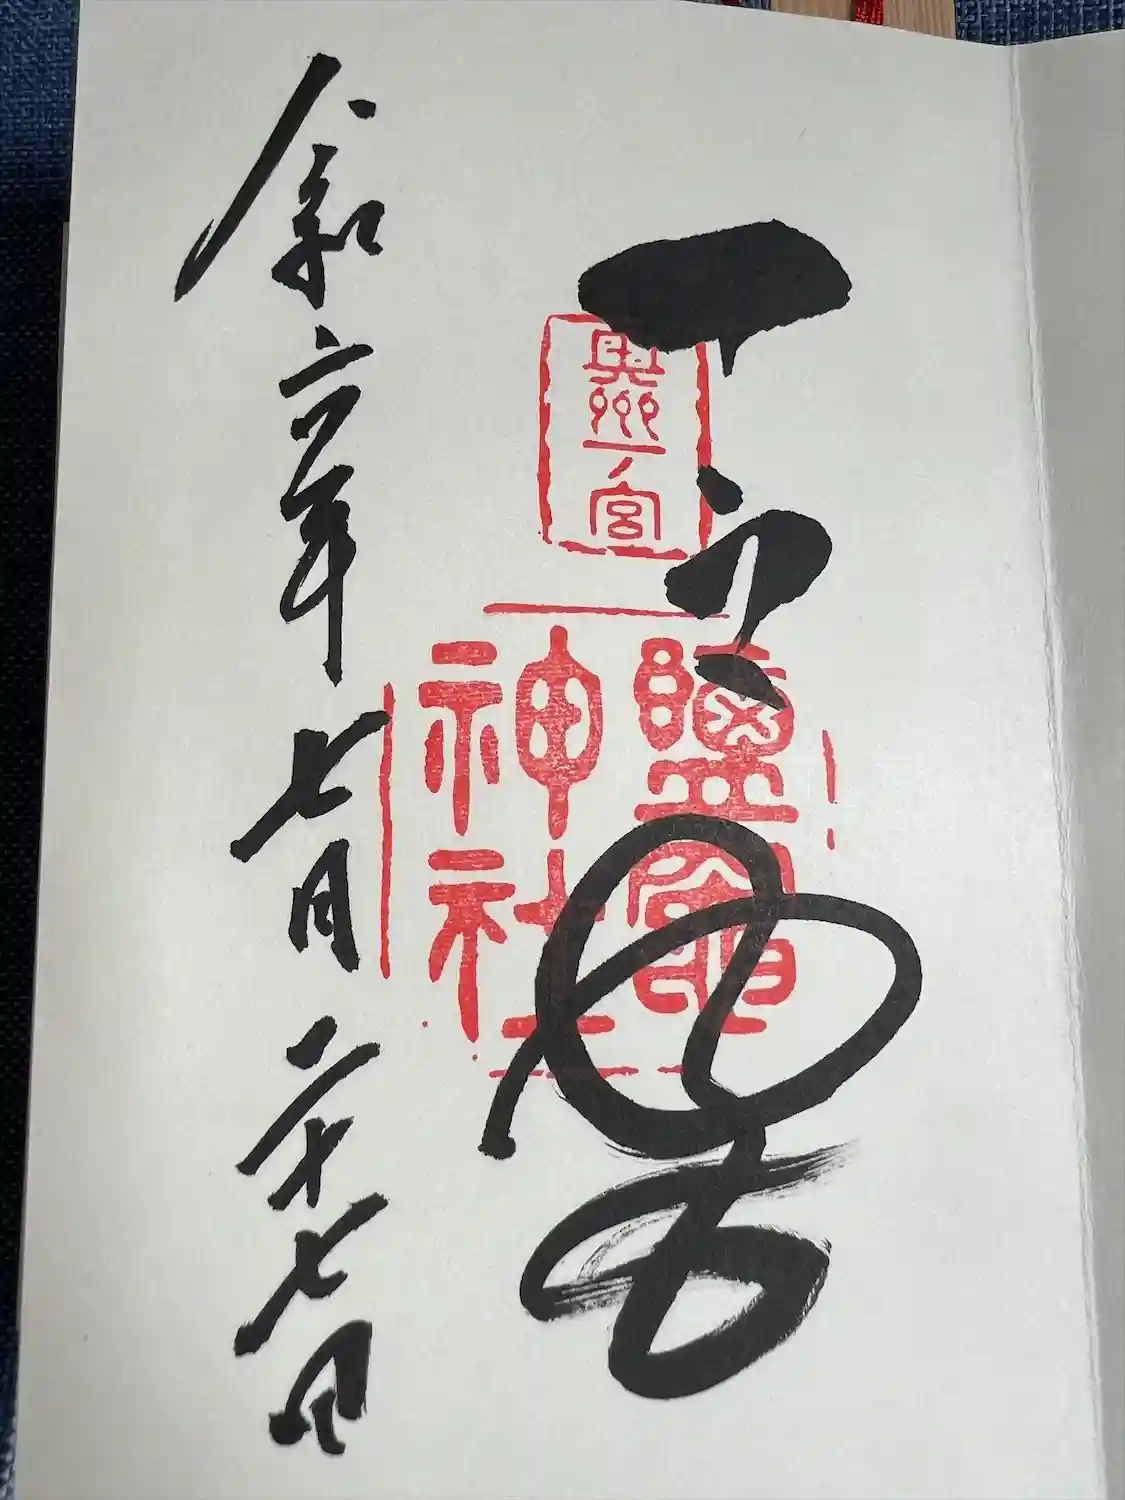 奥州一ノ宮
鹽竈
神社
令和六年七月二十七日